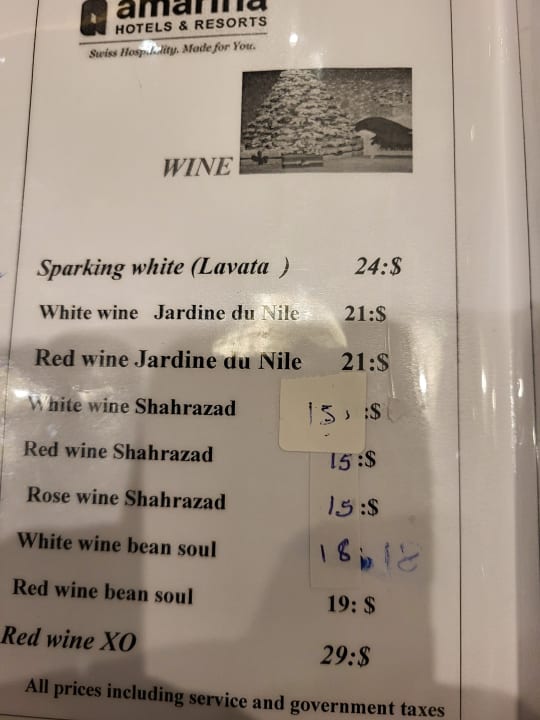 amarina
HOTELS & RESORTS
Swiss Hospitality. Made for You.
WINE
Sparking white (Lavata ) 24:$
White wine Jardine du Nile 21:$
Red wine Jardine du Nile 21:$
White wine Shahrazad 15 :$
Red wine Shahrazad 15:$
Rose wine Shahrazad 15:$
White wine bean soul 18 18
Red wine bean soul 19: $
Red wine XO 29:$
All prices including service and government taxes